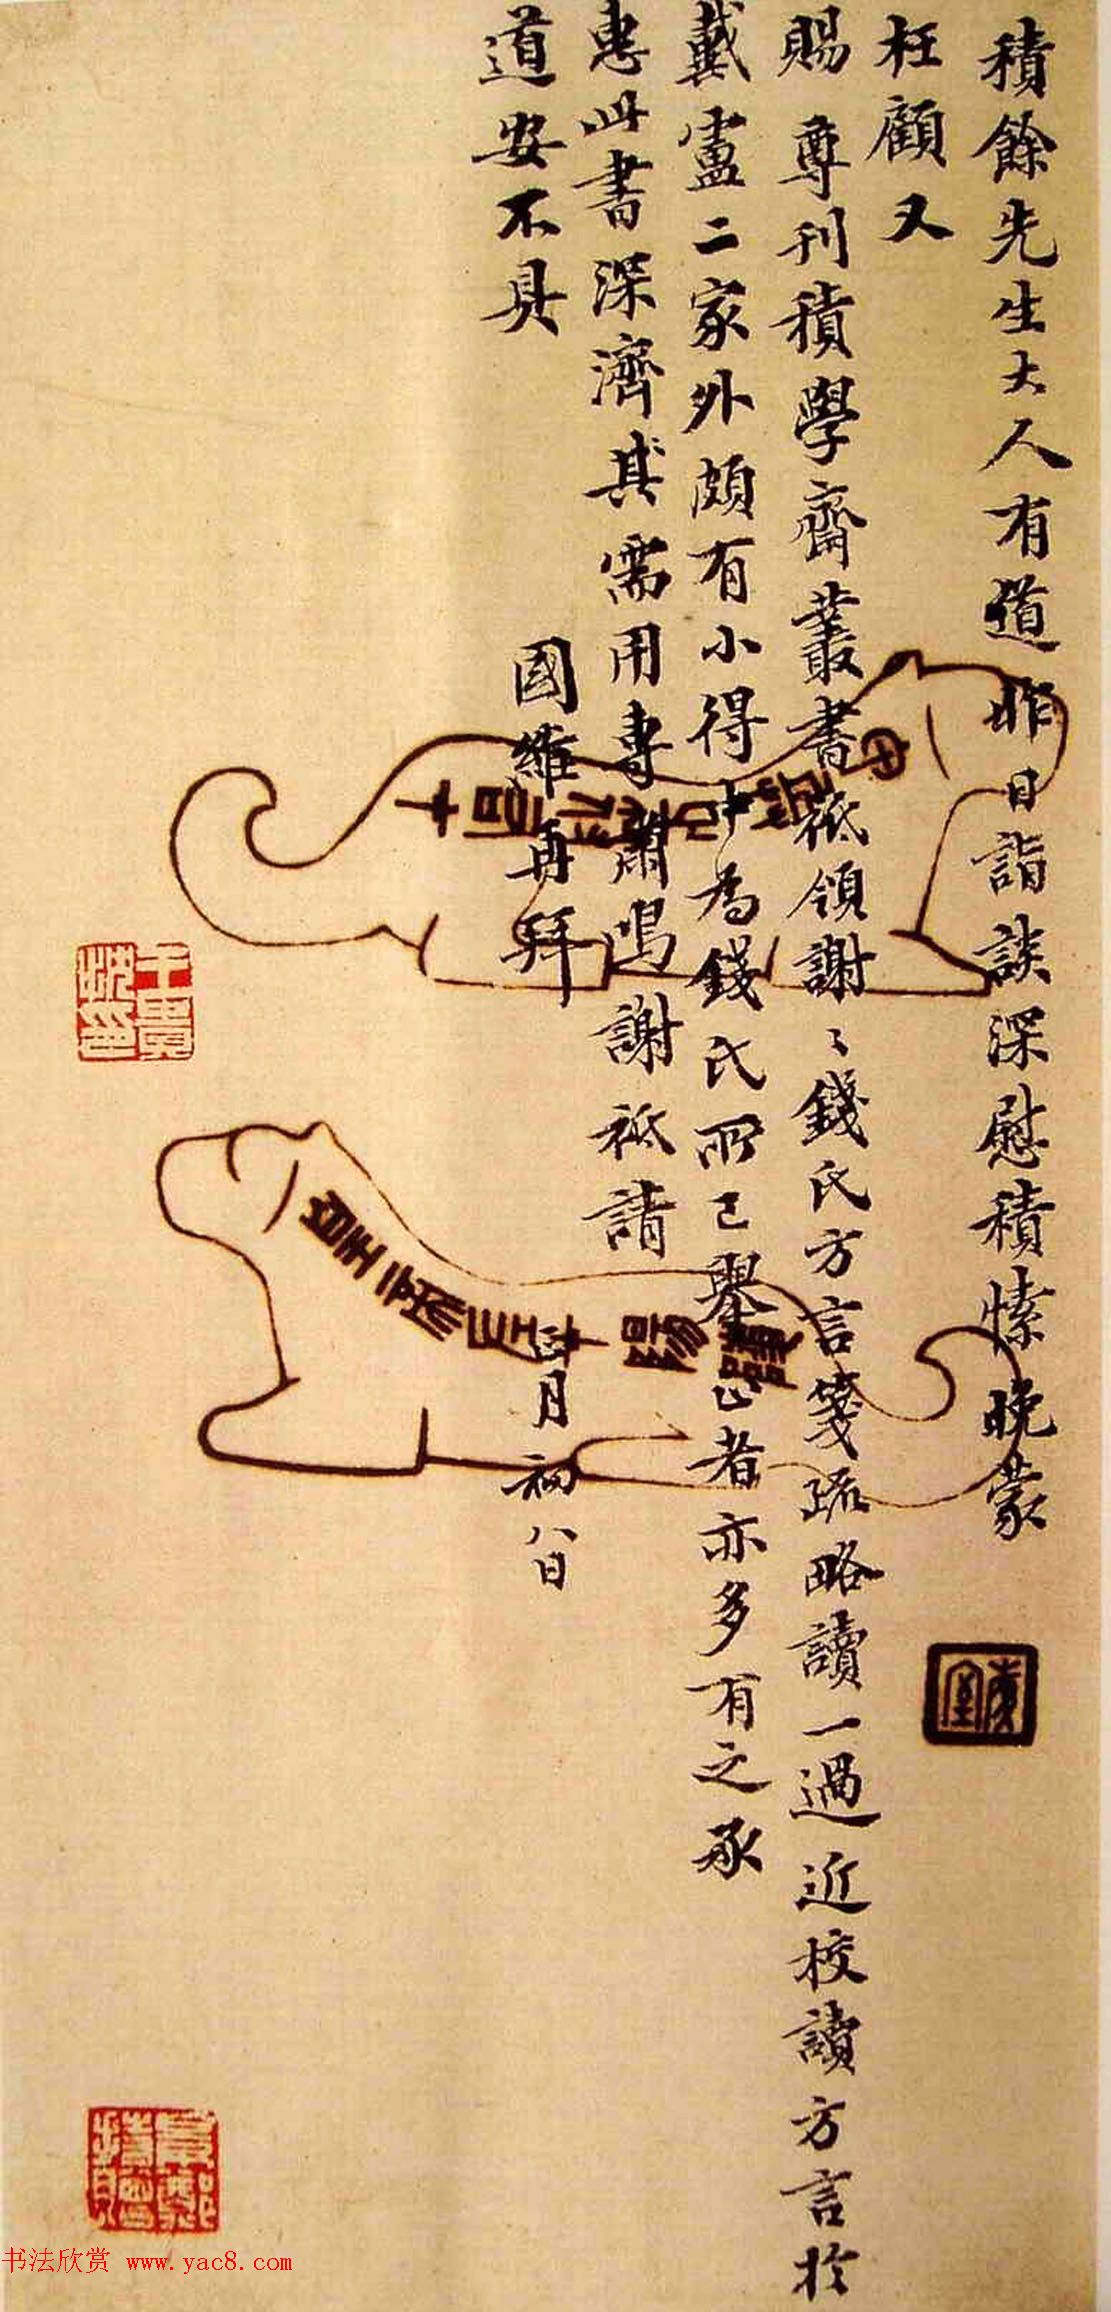 積餘先生大人有道昨日詣談深慰積愫晚蒙
枉顧又
賜 尊刊積學齋叢書祗領謝〻錢氏方言箋疏略讀一過近校讀方言於
戴盧二家外頗有小得中為錢氏所已舉出者亦多有之承
惠此書深濟其需用專肅鳴謝祗請
道安不具
國維再拜
四月初八日
书法欣赏 www.yac8.com